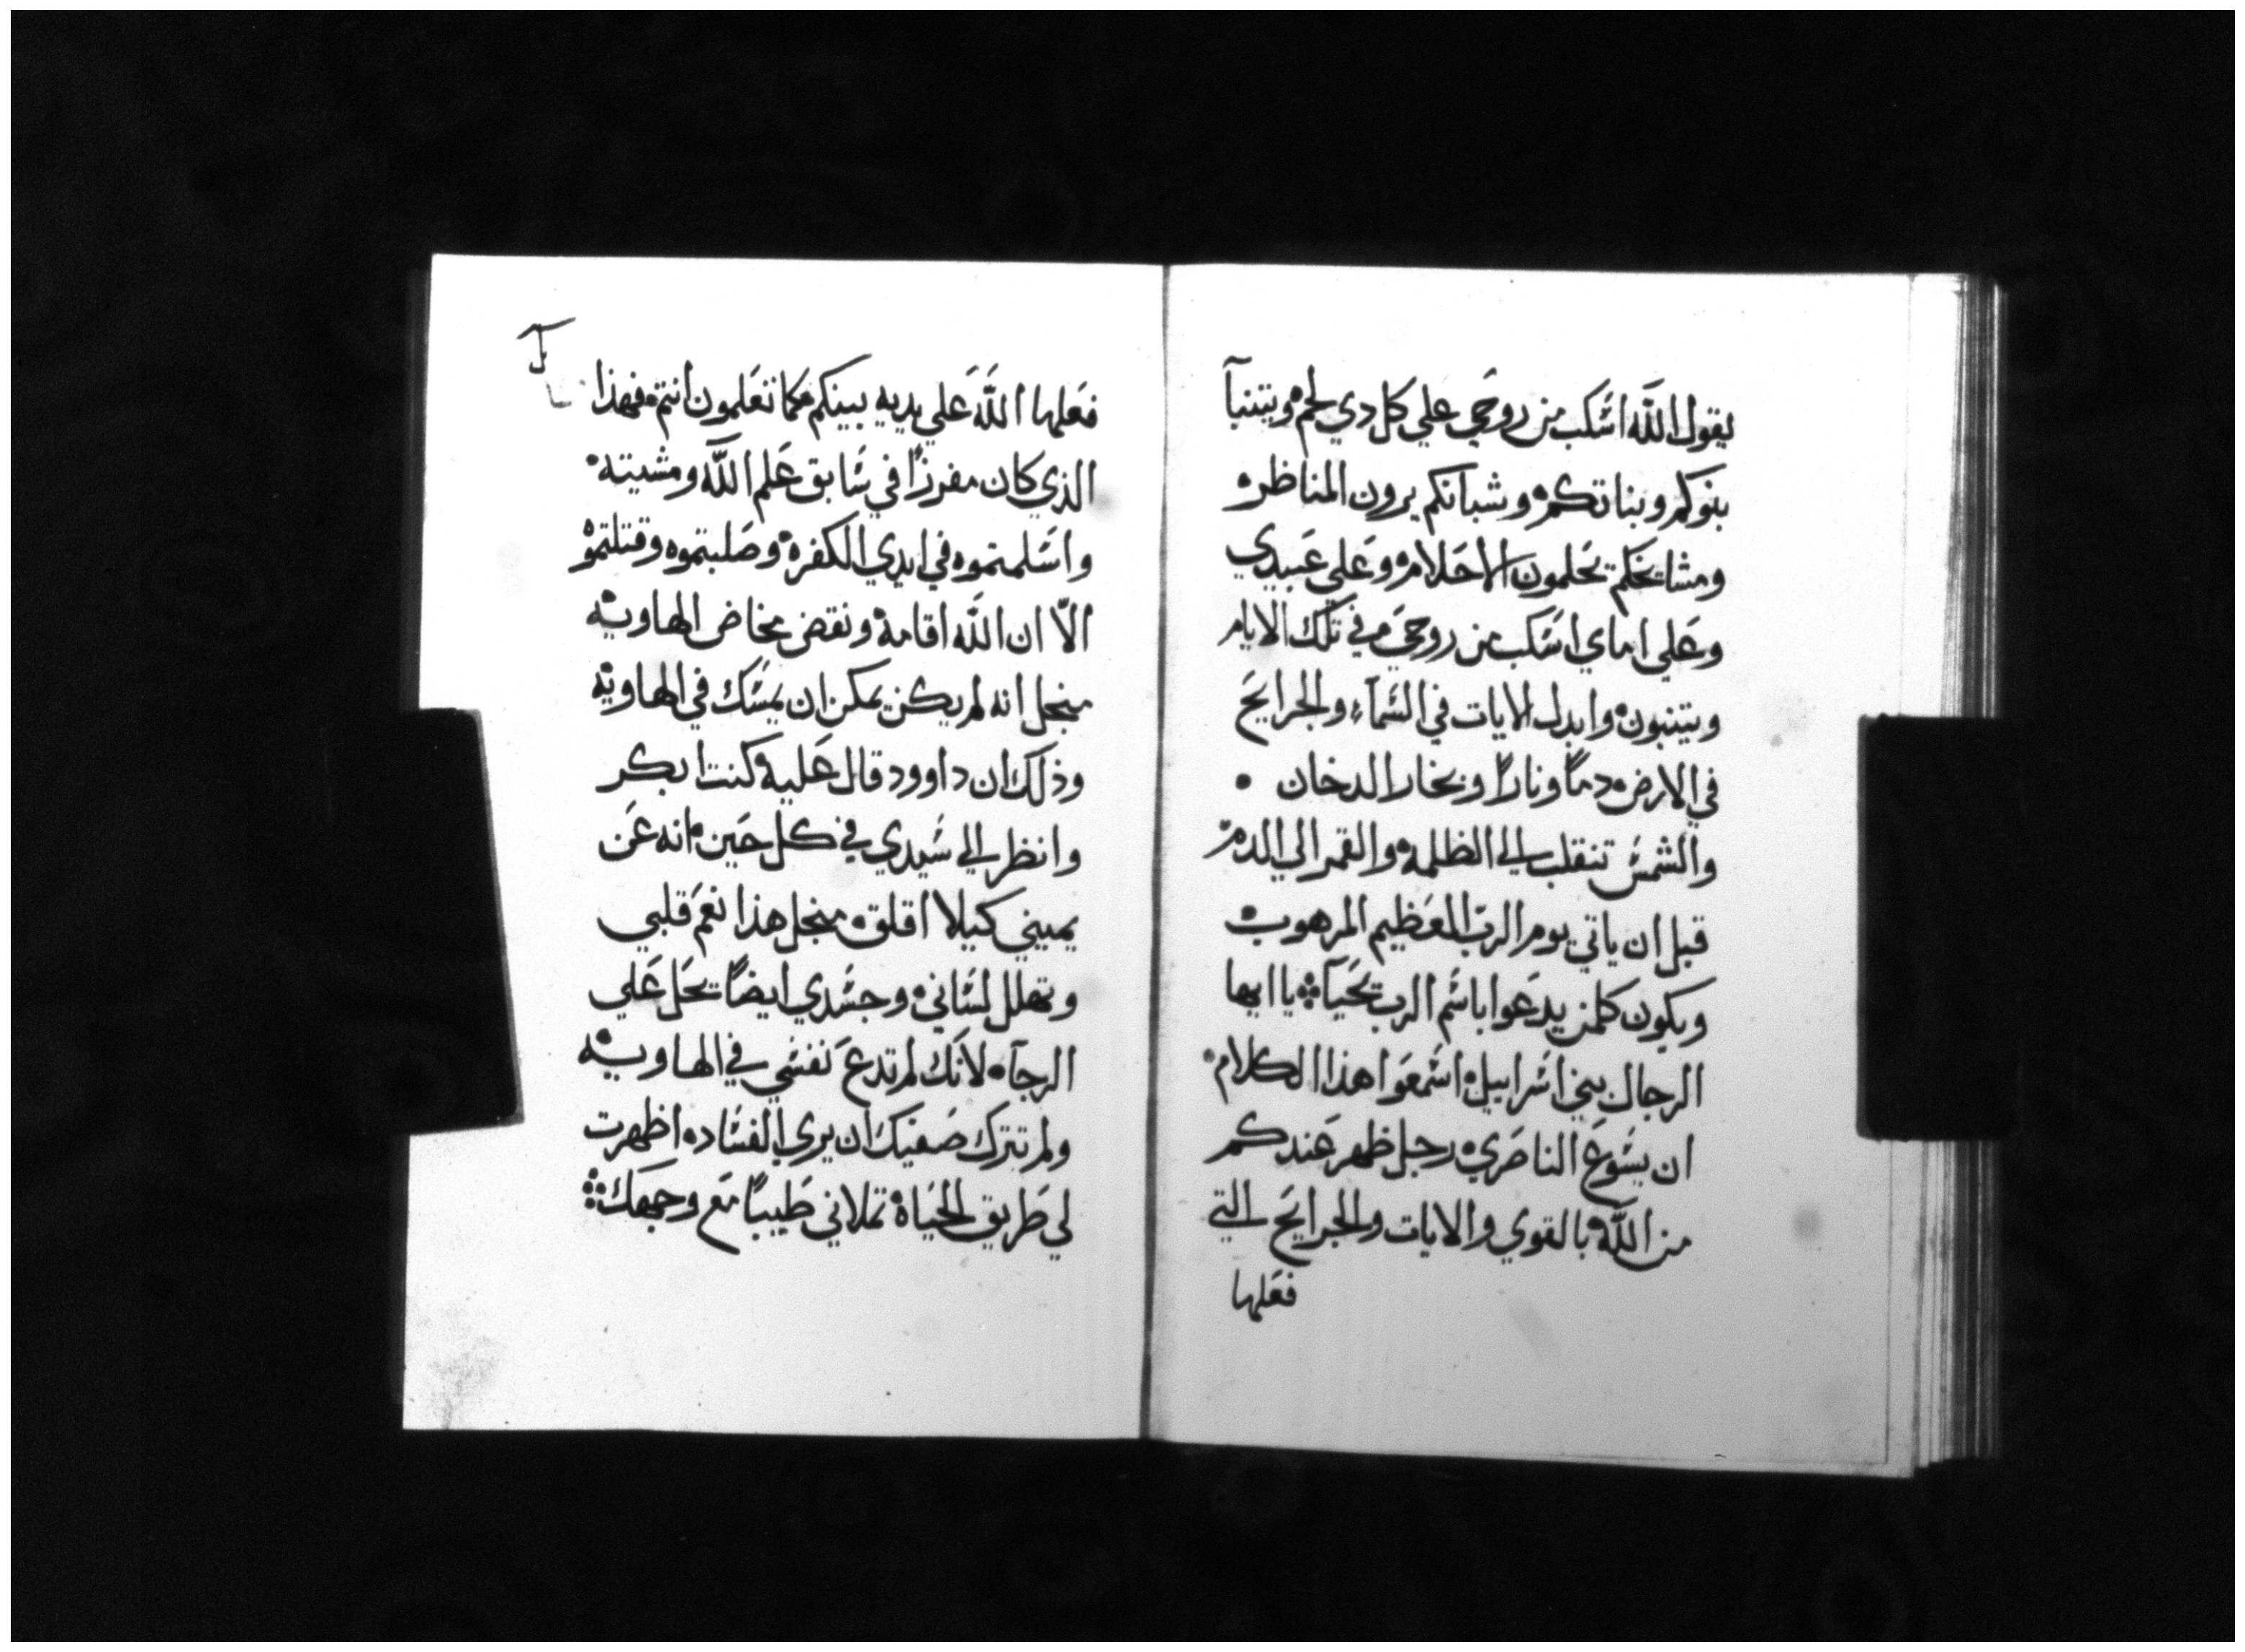 يقول الله اسكب من روحي علي كل دي لحم ويتنبآ
بنوكم وبناتكم وشبانكم يرون المناظر
ومشايخكم تحلمون الاحلام وعلي عبيدي
وعلي اماي اسكب من روحي في تلك الايام
ويتنبون وابدل الايات في السمآء والجرايح
في الارض دمًا ونارًا وبخار الدخان
والشمس تنقلب الي الظلمة والقمر الي الدم
قبل ان ياتي يوم الرب المعظيم المرهوب
ويكون كلمن يدعوا باسم الرب يحيآ يا ايها
الرجال بني اسراييل اسمعوا هذا الكلام
ان يسوع الناصري رجل ظهر عندكم
من الله بالقوي والايات والجرايح التي
فعلها
فعلها الله علي يديه بينكم كما تعلمون انتم فهذا
الذي كان مفرزًا في سابق علم الله ومشيته
واسلمتموه في ايدي الكفرة وصلبتموه وقتلتموه
الّا ان الله اقامة ونقض مخاض الهاوية
منجل انه لم يكن يمكن ان يمسك في الهاوية
وذلك ان داوود قال علية كنت ابكر
وانظر الي سيدي في كل حين انه عن
يميني كيلا اقلق منجل هذا نعم قلبي
وتهلل لساني وجسدي ايضًا يحل علي
الرجآء لانك لم تدع نفسي في الهاوية
ولم تترك صفيك ان يري الفساد اظهرت
لي طريق الحياة تملاني طيبًا مع وجهك